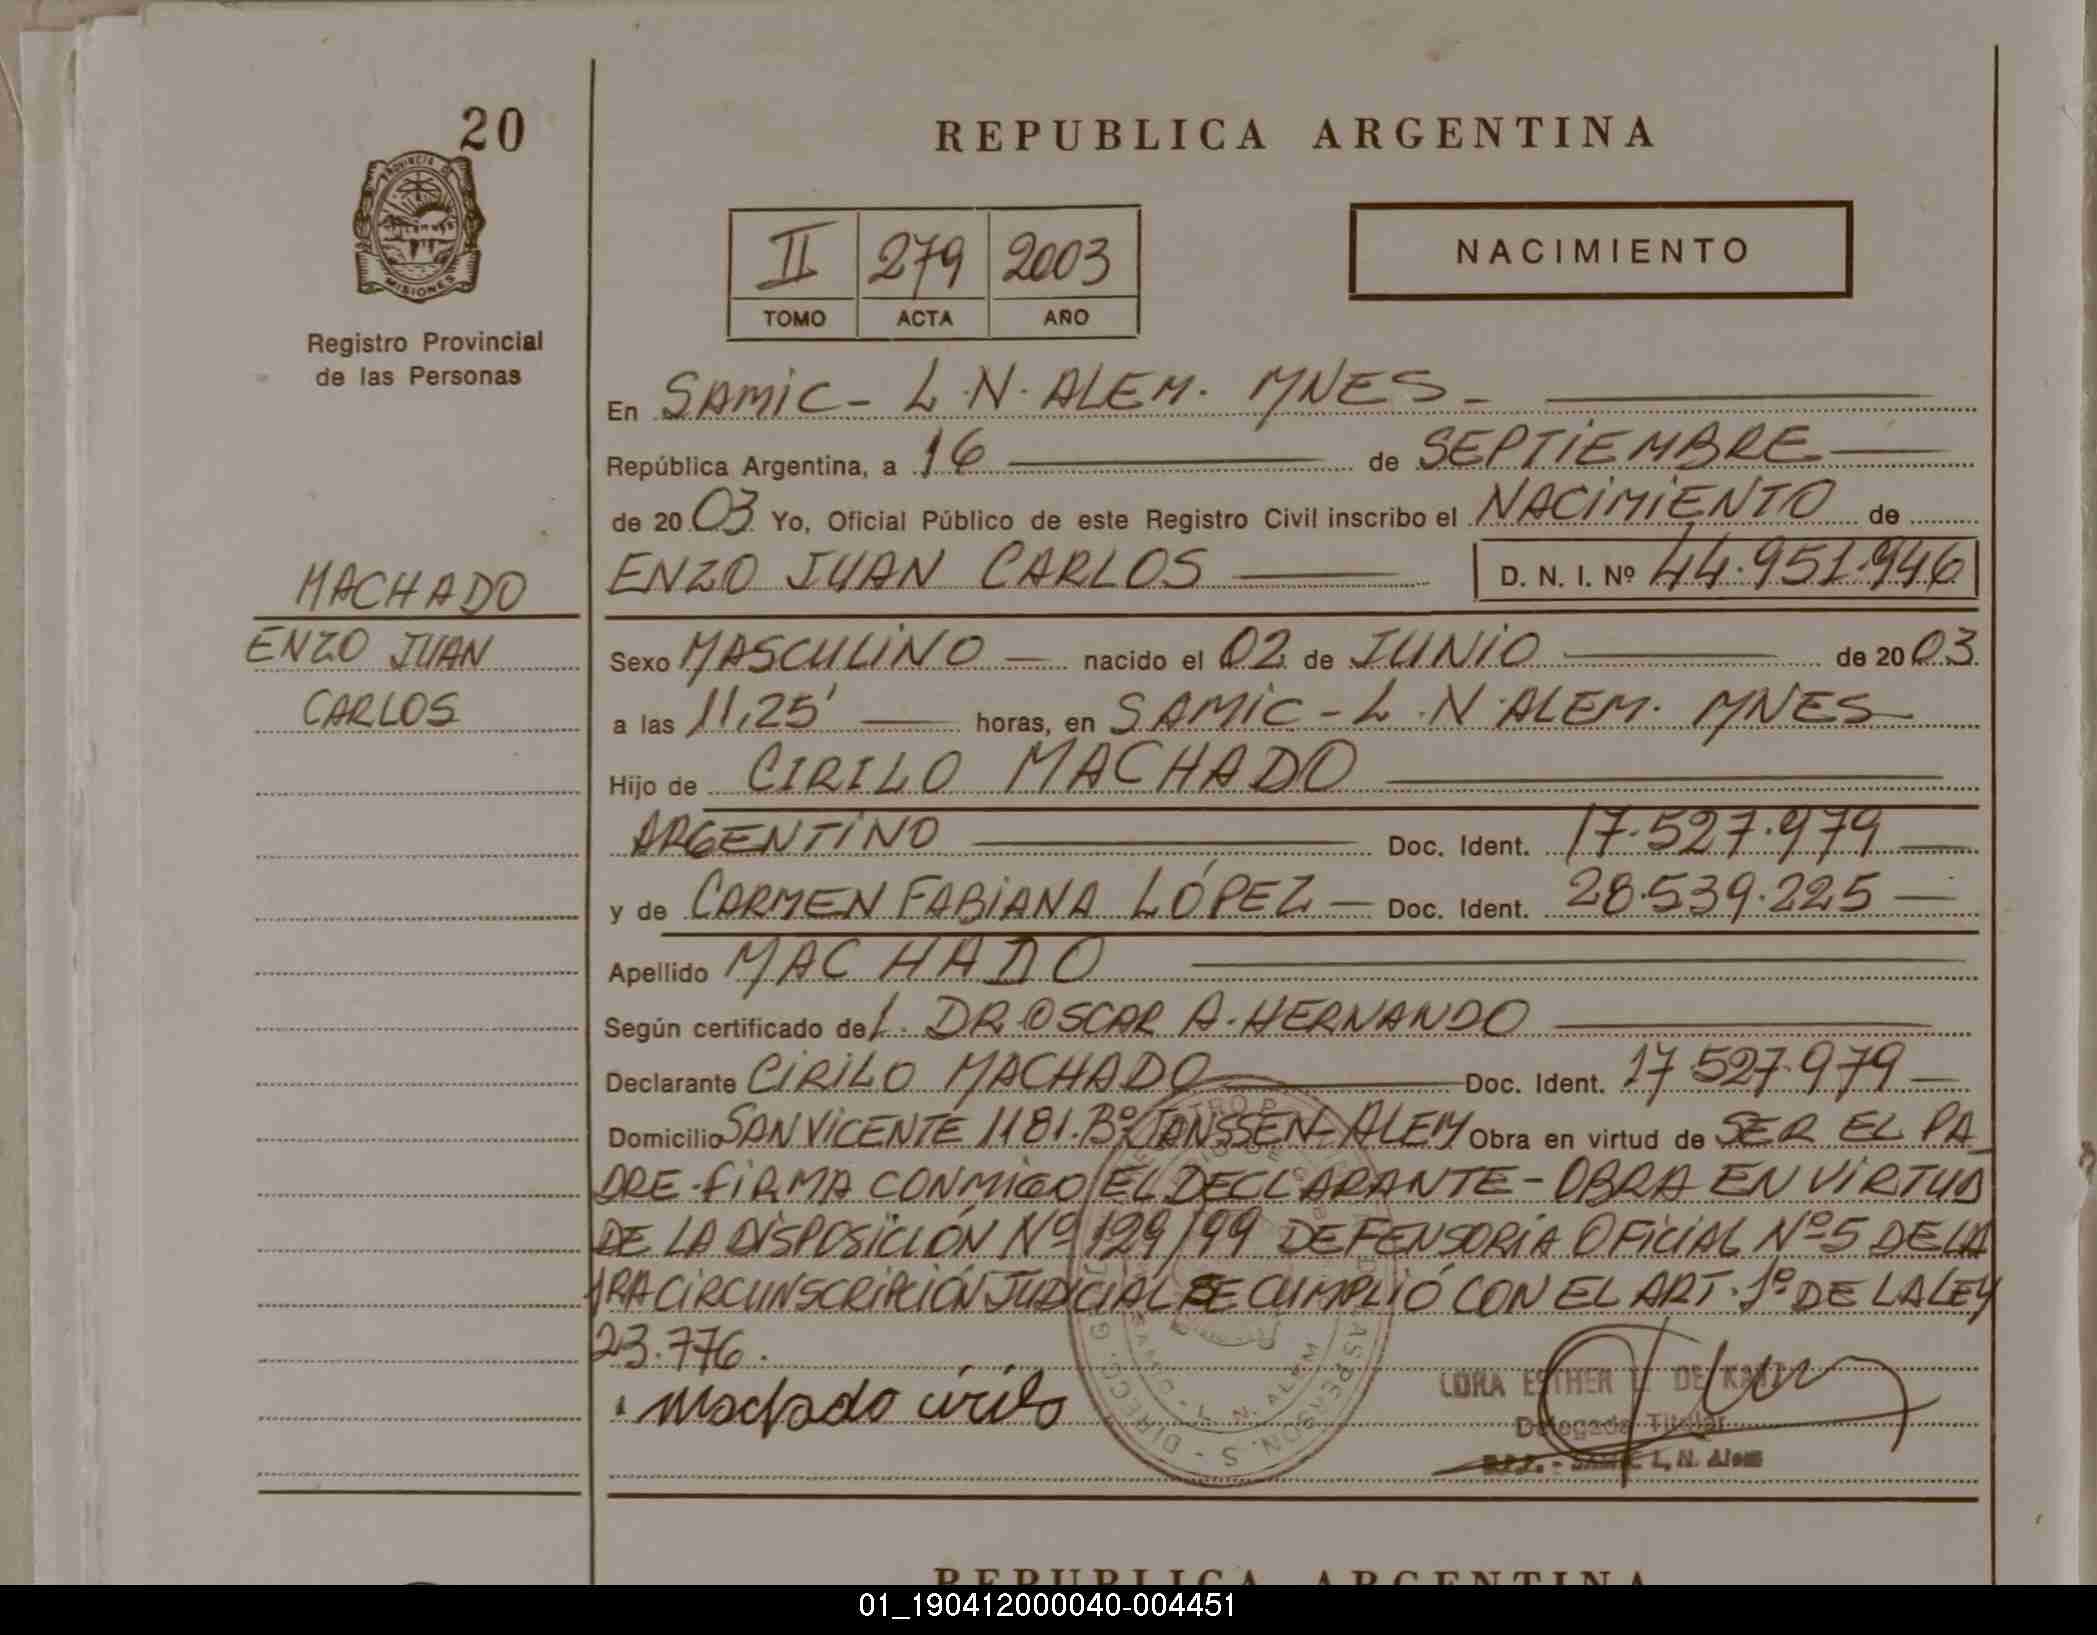 20
REPUBLICA ARGENTINA
PROVINCIA DE
MISIONES
Registro Provincial
de las Personas
II 279 2003
TOMO ACTA AÑO
NACIMIENTO
En SAMIC - L.N. ALEM. MNES -
República Argentina, a 16 de SEPTIEMBRE
de 2003 Yo, Oficial Público de este Registro Civil inscribo el NACIMIENTO de
ENZO JUAN CARLOS D. N. I. Nº 44.951.946
MACHADO
ENZO JUAN
CARLOS
Sexo MASCULINO nacido el 02 de JUNIO de 2003
a las 11,25' horas, en SAMIC - L.N. ALEM. MNES
Hijo de CIRILO MACHADO
ARGENTINO Doc. Ident. 17.527.979
y de CARMEN FABIANA LÓPEZ Doc. Ident. 28.539.225
Apellido MACHADO
Según certificado del. DR OSCAR A. HERNANDO
Declarante CIRILO MACHADO Doc. Ident. 17 527.979
Domicilio SAN VICENTE 1181. Bº JANSSEN - ALEM Obra en virtud de SER EL PA
DRE - FIRMA CONMIGO EL DECLARANTE - OBRA EN VIRTUD
DE LA DISPOSICIÓN Nº 129/99 DEFENSORIA OFICIAL Nº 5 DE LA
1RA CIRCUNSCRIPCIÓN JUDICIAL SE CUMPLIÓ CON EL ART. 1º DE LA LEY
23.776.
Machado cirilo
ESTHER L. DE
Delegada Titular
L, N. Alem
REPUBLICA ARGENTINA
01_190412000040-004451